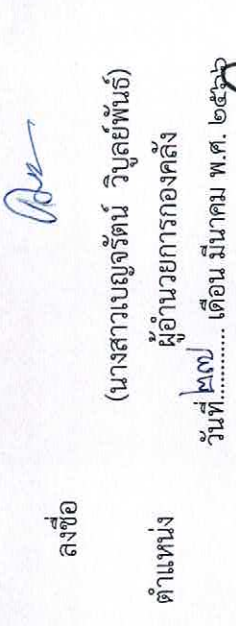 ลงชื่อ
(นางสาวเบญจรัตน์ วิบูลย์พันธ์)
ตำแหน่ง ผู้อำนวยการกองคลัง
วันที่ ๒๗ เดือน มีนาคม พ.ศ. ๒๕๖๖